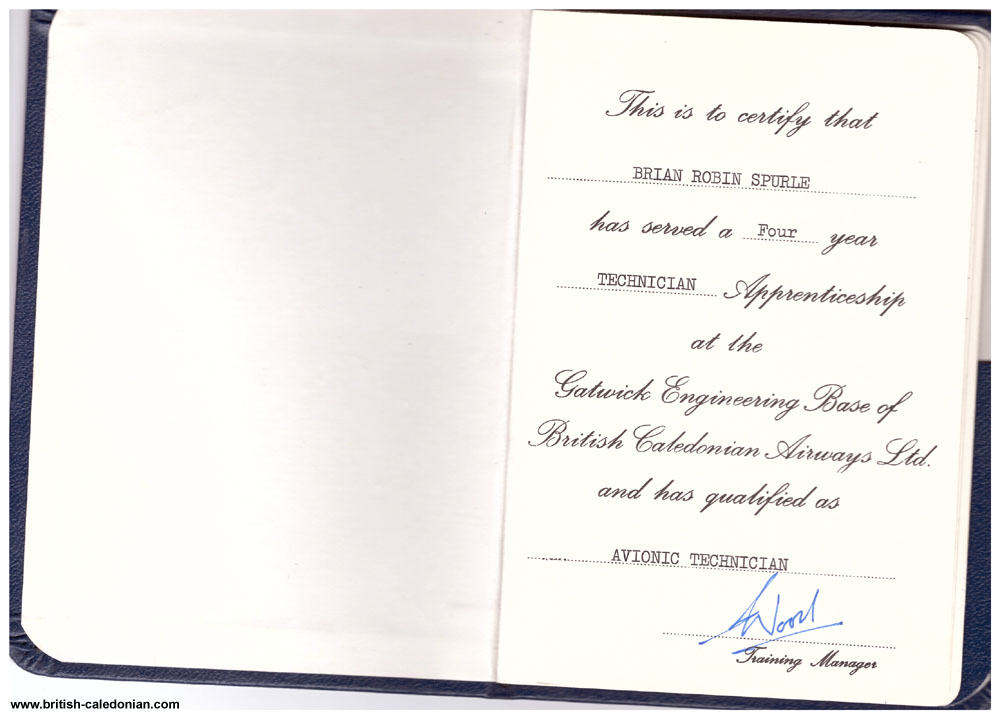 This is to certify that
BRIAN ROBIN SPURLE
has served a Four year
TECHNICIAN Apprenticeship
at the
Gatwick Engineering Base of
British Caledonian Airways Ltd.
and has qualified as
AVIONIC TECHNICIAN
Training Manager
www.british-caledonian.com